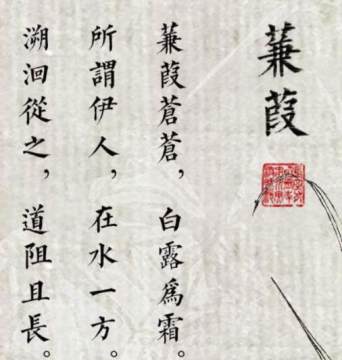 蒹葭
蒹葭蒼蒼，白露爲霜。
所謂伊人，在水一方。
溯洄從之，道阻且長。